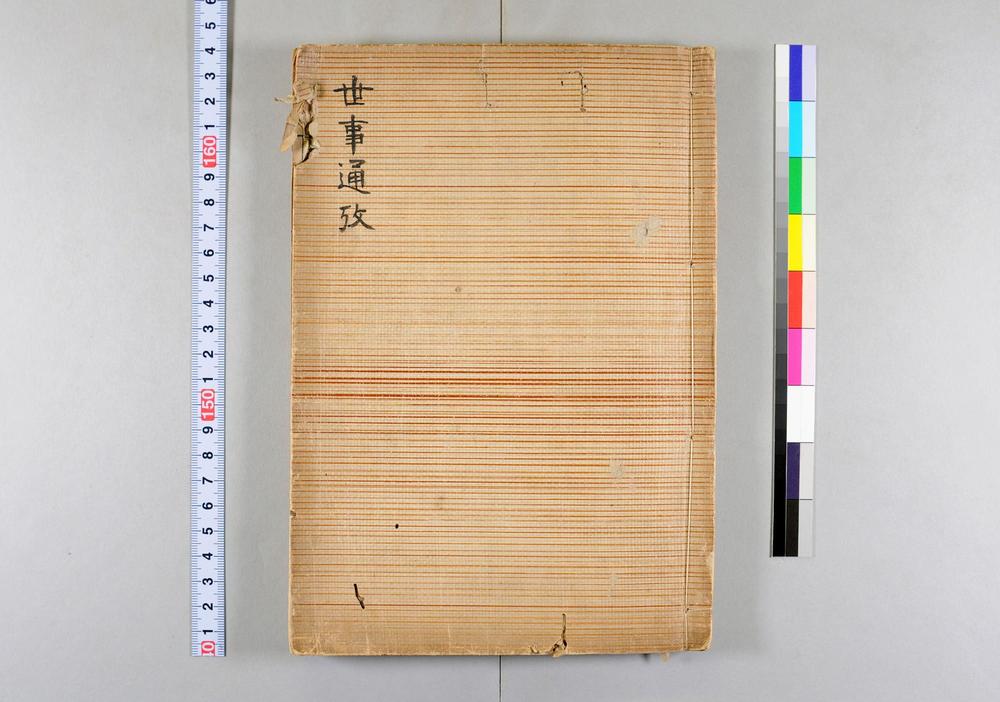 世事通攷
6
5
4
3
2
1
160
9
8
7
6
5
4
3
2
1
150
9
8
7
6
5
4
3
2
1